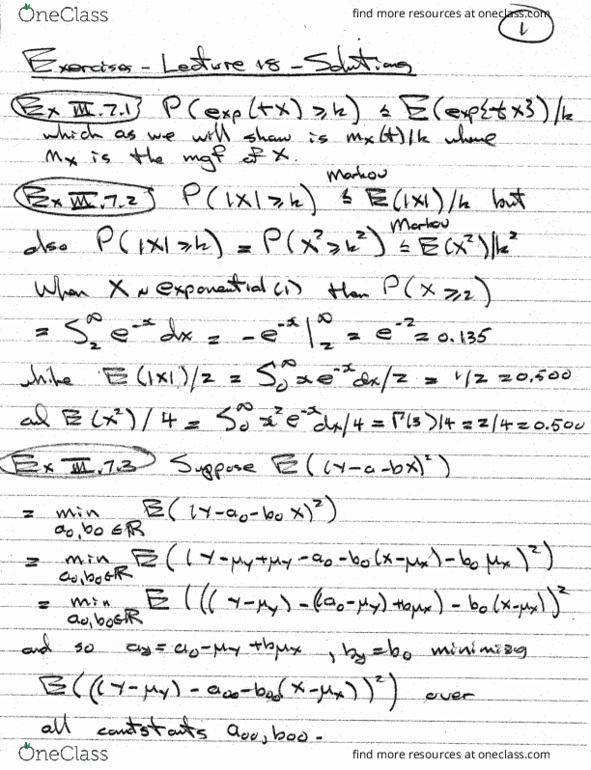 OneClass
find more resources at oneclass.com
1
Exercises - Lecture 18 - Solutions
Ex III.7.1 P(exp(tX) ≥ k) ≤ E(exp{tX})/k
which as we will show is m_X(t)/k where
m_X is the mgf of X.
Markov
Ex III.7.2 P(|X| ≥ k) ≤ E(|X|)/k but
Markov
also P(|X| ≥ k) = P(X² ≥ k²) ≤ E(X²)/k²
When X ~ exponential(1) then P(X ≥ 2)
= ∫_2^∞ e^{-x} dx = -e^{-x}|_2^∞ = e^{-2} = 0.135
while E(|X|)/2 = ∫_0^∞ x e^{-x} dx/2 = 1/2 = 0.500
and E(X²)/4 = ∫_0^∞ x² e^{-x} dx/4 = Γ(3)/4 = 2/4 = 0.500
Ex III.7.3 Suppose E((Y-a-bX)²)
= min_{a0,b0∈R} E((Y-a0-b0X)²)
= min_{a0,b0∈R} E((Y-μ_Y+μ_Y-a0-b0(X-μ_X)-b0μ_X)²)
= min_{a0,b0∈R} E(((Y-μ_Y)-(a0-μ_Y)+b0μ_X)-b0(X-μ_X))²
and so = a0-μ_Y+bμ_X, = b0 minimizing
E(((Y-μ_Y)-a00-b00(X-μ_X))²) over
all constants a00, b00.
OneClass
find more resources at oneclass.com